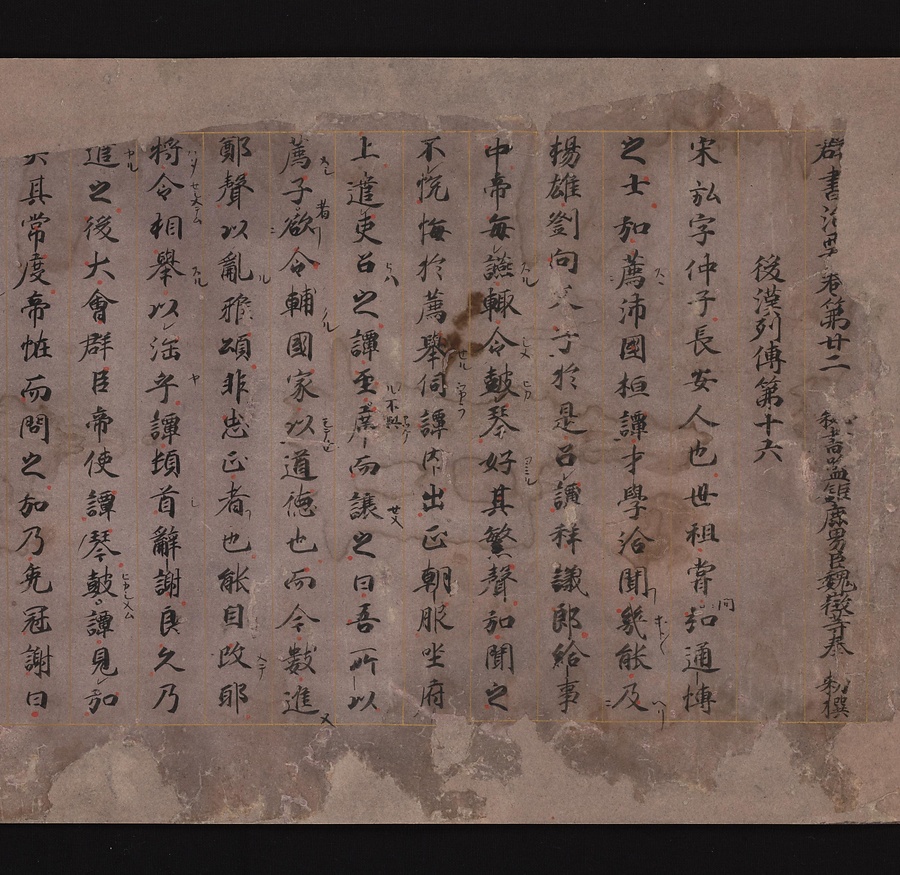 群書治要卷第廿二 秘書監鉅鹿男臣魏徵等奉 勅撰
後漢列傳第十六
宋弘字仲子長安人也世祖嘗問弘通博
之士弘薦沛國桓譚才學洽聞幾能及
揚雄劉向父子於是召譚拜議郎給事
中帝每讌輙令皷琴好其繁聲弘聞之
不悅悔於薦舉伺譚內出正朝服坐府
上遣吏召之譚至不與席而讓之曰吾所以
薦子者欲令輔國家以道德也而今數進
鄭聲以亂雅頌非忠正者也能自改耶
將令相舉以法乎譚頓首辭謝良久乃
遣之後大會群臣帝使譚琴皷譚見弘
失其常度帝恠而問之弘乃免冠謝曰